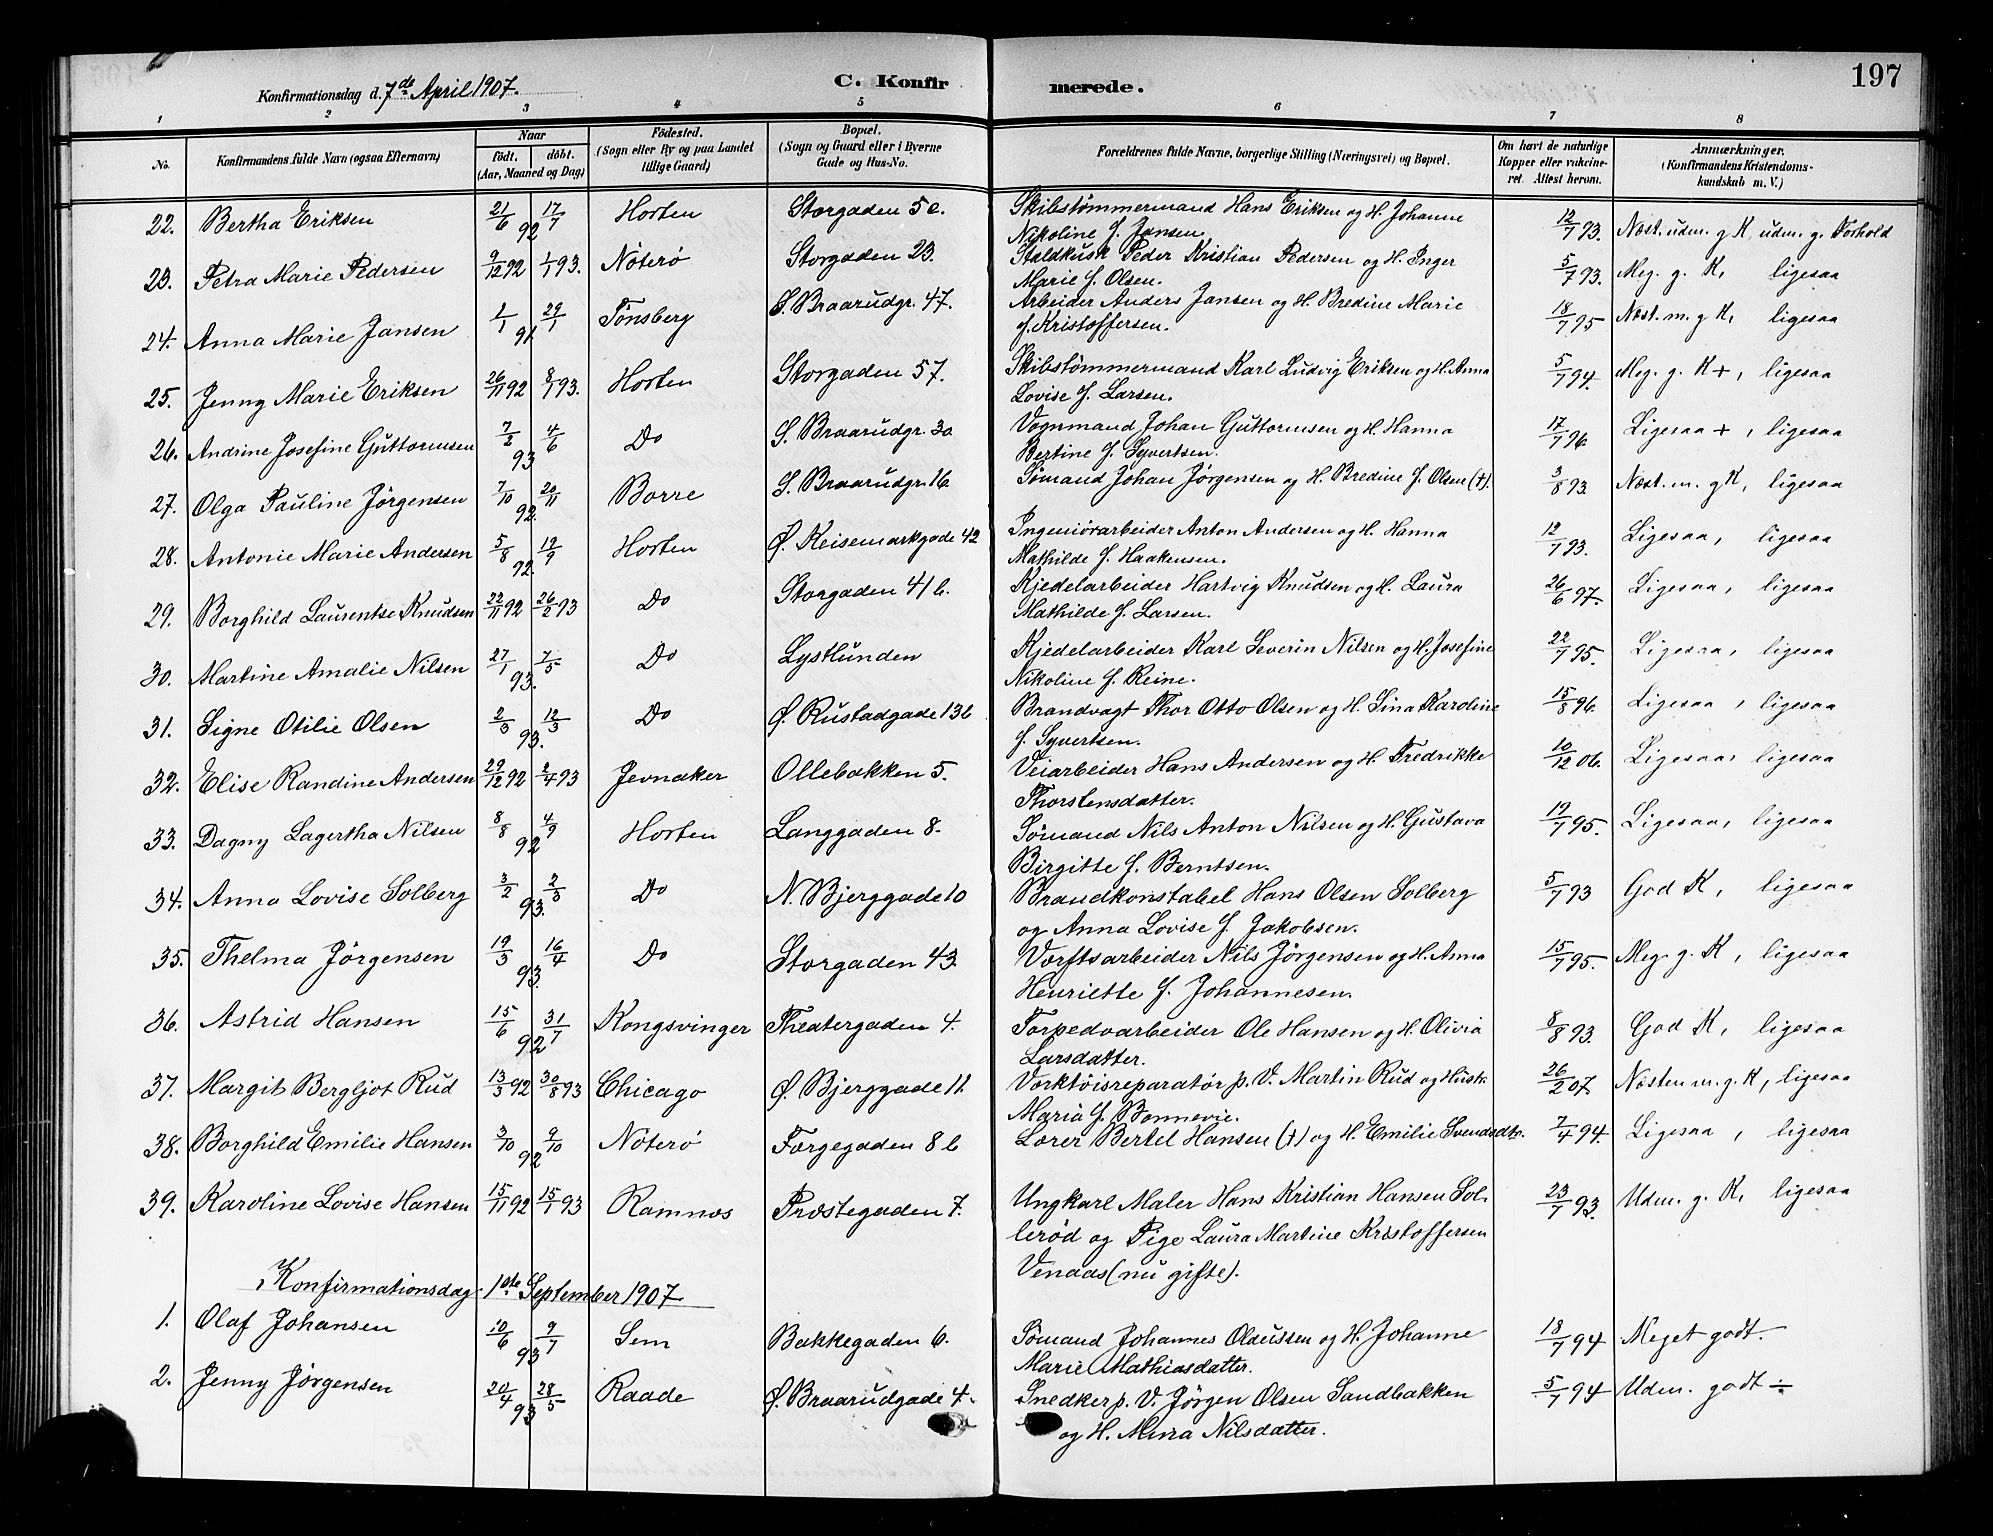 197
Konfirmationsdag d. 7de April 1907.
C. Konfirmerede.
1 2 3 4 5 6 7 8
No. Konfirmandens fulde Navn (ogsaa Efternavn) Naar født, døbt. (Aar, Maaned og Dag) Födested. (Sogn eller By og paa Landet tillige Gaard) Bopæl. (Sogn og Gaard eller i Byerne Gade og Hus-No. Forældrenes fulde Navne, borgerlige Stilling (Næringsvei) og Bopæl. Om havt de naturlige Kopper eller vakcineret. Attest herom. Anmærkninger. (Konfirmandens Kristendomskundskab m. V.)
22. Bertha Eriksen 21/6 92 17/7 Horten Storgaden 5 c. Skibstömmermand Hans Eriksen og H. Johanne 12/7 93. Næst. udm. g K, udm. g. Forhold
Nikoline f. Jansen
23. Petra Marie Pedersen 9/12 92 1/1 93. Nöterö Storgaden 23. Staldkusk Peder Kristian Pedersen og H. Inger 5/7 93. Meg. g. K, ligesaa
Marie f. Olsen.
24. Anna Marie Jansen 1/1 91 29/1 Tönsberg S. Braarudgr. 47. Arbeider Anders Jansen og H. Bredine Marie 18/7 95 Næst. m. g K, ligesaa
f. Kristoffersen.
25. Jenny Marie Eriksen 26/11 92 8/1 93. Horten Storgaden 57. Skibstömmermand Karl Ludvig Eriksen og H. Anna 5/7 94. Meg. g. K +, ligesaa
Lovise f. Larsen.
26. Andrine Josefine Guttormsen 7/2 93 4/6 Do S. Braarudgr. 30. Vognmand Johan Guttormsen og H. Hanna 17/7 96. Ligesaa +, ligesaa
Bertine f. Syvertsen.
27. Olga Pauline Jörgensen 7/10 92. 20/11 Borre S. Braarudgr. 16 Sömand Johan Jörgensen og H. Bredine f. Olsen (†). 3/8 93. Næst. m. g K, ligesaa
28. Antonie Marie Andersen 5/8 92. 12/9 Horten Ø. Keisemarkgade 42 Ingeniörarbeider Anton Andersen og H. Hanna 12/7 93. Ligesaa, ligesaa
Mathilde f. Haakensen.
29. Borghild Laurentse Knudsen 22/11 92 26/2 93 Do Storgaden 41 b. Kjedelarbeider Hartvig Knudsen og H. Laura 26/6 97. Ligesaa, ligesaa
Mathilde f. Larsen.
30. Martine Amalie Nilsen 27/1 93. 7/5 Do Lystlunden Kjedelarbeider Karl Severin Nilsen og H. Josefine 22/7 95. Ligesaa, ligesaa
Nikoline f. Reine.
31. Signe Otilie Olsen 2/3 93. 12/3 Do Ø. Rustadgade 13 b Brandvagt Thor Otto Olsen og H. Lina Karoline 15/8 96. Ligesaa, ligesaa
f. Syvertsen.
32. Elise Randine Andersen 29/12 92 2/4 93 Jevnaker Ollebakken 5. Veiarbeider Hans Andersen og H. Fredrikke 10/12 06. Ligesaa, ligesaa
Thorstensdatter.
33. Dagny Lagertha Nilsen 8/8 92 4/9 Horten Langgaden 8. Sömand Nils Anton Nilsen og H. Gustava 19/7 95. Ligesaa, ligesaa
Birgitte f. Berntsen.
34. Anna Lovise Solberg 3/2 93. 2/3 Do N. Bjerggade 10 Brandkonstabel Hans Olsen Solberg 5/7 93 God K, ligesaa
og Anna Lovise f. Jakobsen.
35. Thelma Jörgensen 19/3 93. 16/4 Do Storgaden 43. Værftsarbeider Nils Jörgensen og H. Anna 15/7 95. Meg. g. K, ligesaa
Henriette f. Johannesen.
36. Astrid Hansen 15/6 92 31/7 Kongsvinger Theatergaden 4. Torpedoarbeider Ole Hansen og H. Olivia 8/8 93. God K, ligesaa
Larsdatter.
37. Margit Bergljot Rud 13/3 92 30/8 93 Chicago Ø. Bjerggade 11. Værktöisreparatör p. V. Martin Rud og Hustr. 26/2 07. Næsten m. g. K, ligesaa
Maria f. Bonnevie.
38. Borghild Emilie Hansen 3/10 92 9/10 Nöterö Færgegaden 8 b Lærer Bertel Hansen (†) og H. Emilie Svendsdtr. 7/4 94. Ligesaa, ligesaa
39. Karoline Lovise Hansen 15/11 92 15/1 93 Ramnæs Præstegaden 7. Ungkarl Maler Hans Kristian Hansen Sol- 23/7 93. Udm. g. K, ligesaa
leröd og Pige Laura Martine Kristoffersen
Venaas (nu gifte).
Konfirmationsdag 1ste September 1907
1. Olaf Johansen 10/6 93 9/7 Sem Bakkegaden 6. Sömand Johannes Olaussen og H. Johanne 18/7 94 Meget godt.
Marie Mathiasdatter.
2. Jenny Jörgensen 20/4 93 28/5 Raade Ø. Braarudgade 4. Snedker p. V. Jörgen Olsen Sandbakken 5/7 94 Udm. godt ÷
og H. Mina Nilsdatter.